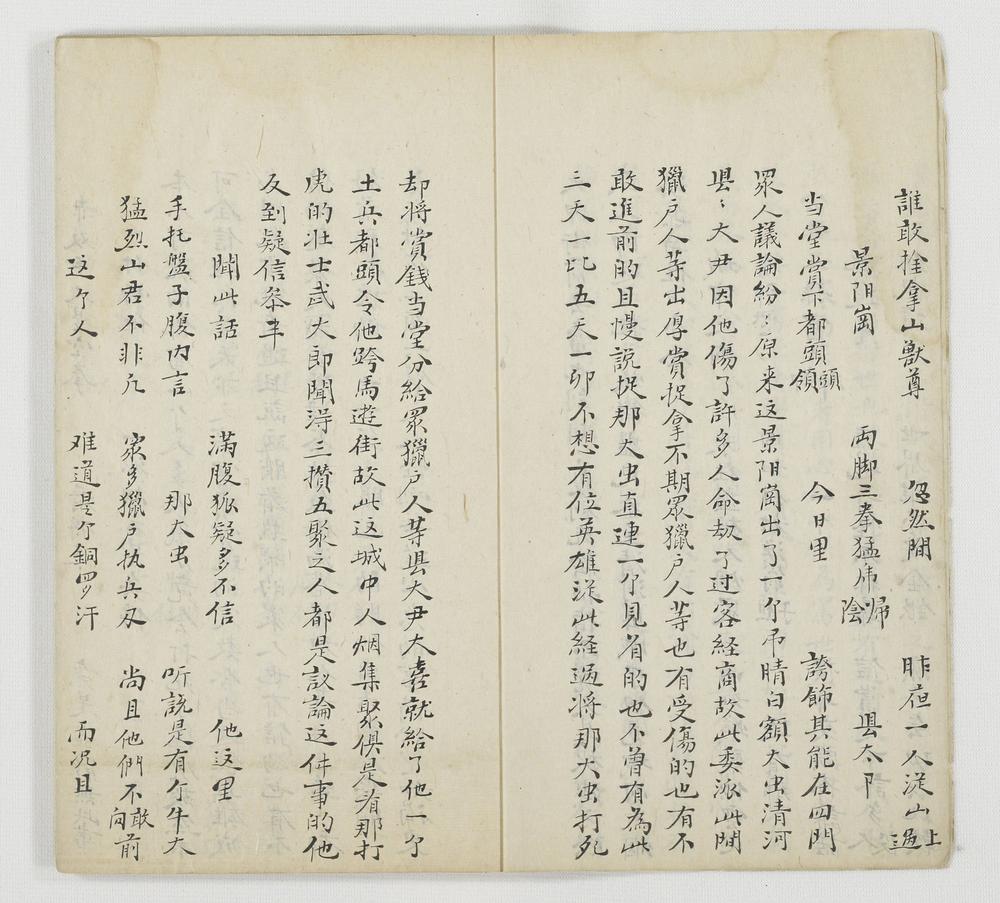 誰敢拴拿山獸尊　忽然間　昨夜一人従山上過
景阳崗　両脚三拳猛虎歸陰　县太阝
当堂賞下都頭頭領　今日里　誇飾其能在四門
眾人議論紛〻原来这景阳崗出了一个吊睛白額大虫清河
县〻大尹因他傷了許多人命刼了过客経商故此委派此間
獵户人等出厚賞捉拿不期眾獵户人等也有受傷的也有不
敢進前的且慢説捉那大虫直連一个見着的也不曾有為此
三天一比五天一卯不想有位英雄従此経過将那大虫打死
却将賞銭当堂分給眾獵户人等县大尹大喜就給了他一个
土兵都頭令他跨馬遊街故此这城中人烟集聚俱是看那打
虎的壮士武大郎聞淂三攅五聚之人都是議論这件事的他
反到疑信叅半
聞此話　满腹狐疑多不信　他这里
手托盤子腹内言　那大虫　听説是有个牛大
猛烈山君不非凢　家多獵户执兵刃　尚且他們不敢向前
这个人　难道是个銅罗汗　而况且